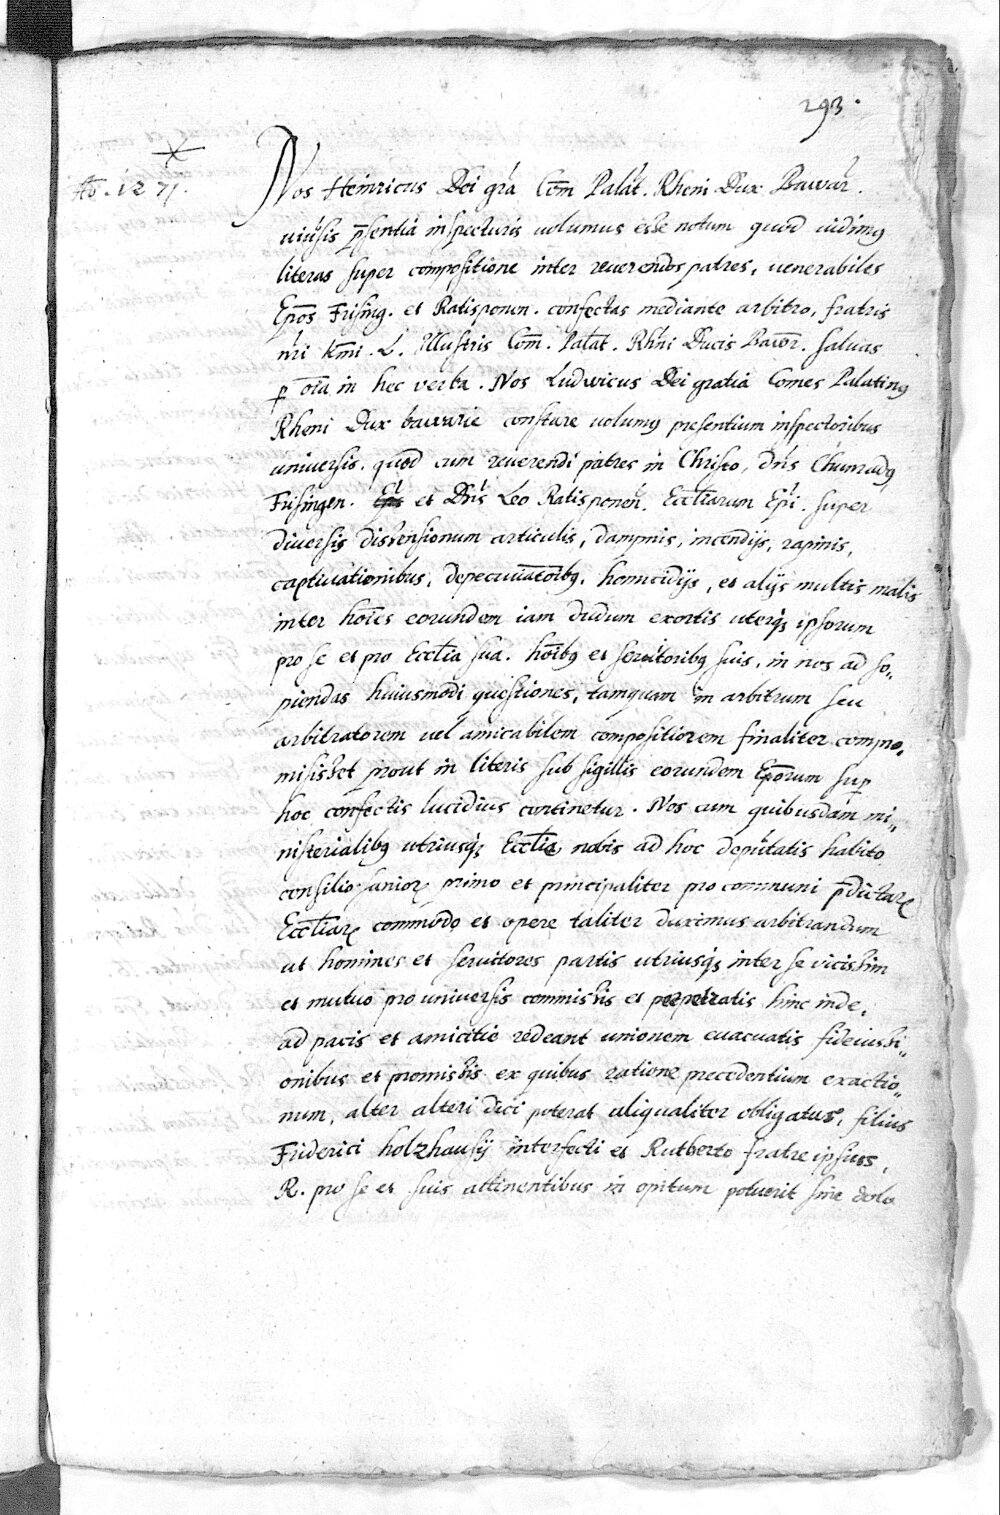 293.
Ao. 1271.
Nos Heinricus Dei gr̃a Com̃ Palat̃. Rheni Dux Bawar̃.
uiṽsis p̃sentia inspecturis uolumus esse notum quod uidimꝰ
literas super compositione inter reuerendos patres, uenerabiles
Ep̃os Frising. et Ratisponen. confectas mediante arbitro, fratris
nr̃i km̃i. L. Illustris Com̃. Palat̃. Rh̃ni Ducis Bawr̃. saluas
ꝑ oĩa in hec verba. Nos Ludwicus Dei gratia Comes Palatinꝰ
Rheni Dux bawarie constare uolumꝰ presentium inspectoribus
universis, quod cum reuerendi patres in Christo, dñs Chunradꝰ
Frisingen. et Dñs Leo Ratisponeñ. Eccl̃iarum Ep̃i. super
diuersis dissensionum articulis, dampnis, incendijs, rapinis,
captiuationibus, depecuniatõibꝰ, homicidijs, et alijs multis malis
inter hoĩes eorundem iam dudum exortis uterqꝫ ipsorum
pro se et pro Eccl̃ia sua. hoĩbꝰ et seruitoribꝰ suis, in nos ad so„
piendas huiusmodi questiones, tamquam in arbitrum seu
arbitratorem uel amicabilem compositiorem finaliter compro„
misisset prout in literis sub sigillis eorundem Ep̃orum suꝑ
hoc confectis lucidius continetur. Nos cum quibusdam mi„
nisterialibꝰ utriusqꝫ Eccl̃ie nobis ad hoc deputatis habito
consilio saniorꝝ primo et principaliter pro communi p̃dictarꝝ
Eccl̃iarꝝ commodo et opere taliter duximus arbitrandum
ut homines et seruitores partis utriusqꝫ inter se vicissim
et mutuo pro universis commissis et perpetratis hinc inde,
ad pacis et amicitie redeant unionem euacuatis fideiussi„
onibus et promissis ex quibus ratione precedentium exactio„
num, alter alteri dici poterat aliqualiter obligatus, filius
Friderici holzhausij interfecti et Rutberto fratre ipsius,
R. pro se et suis attinentibus in opitum potuerit sine dolo